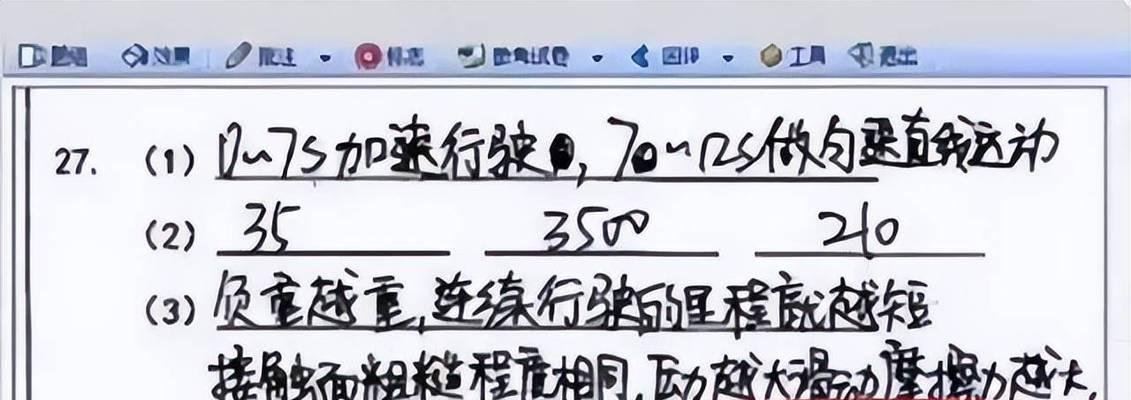 工具 退出
27. (1) 0~7s加速行驶, 7~12s做匀速直线运动
(2) 35 3500 210
(3) 负重越重,连续行驶的里程就越短
接触面粗糙程度相同,压力越大滑动摩擦力越大,